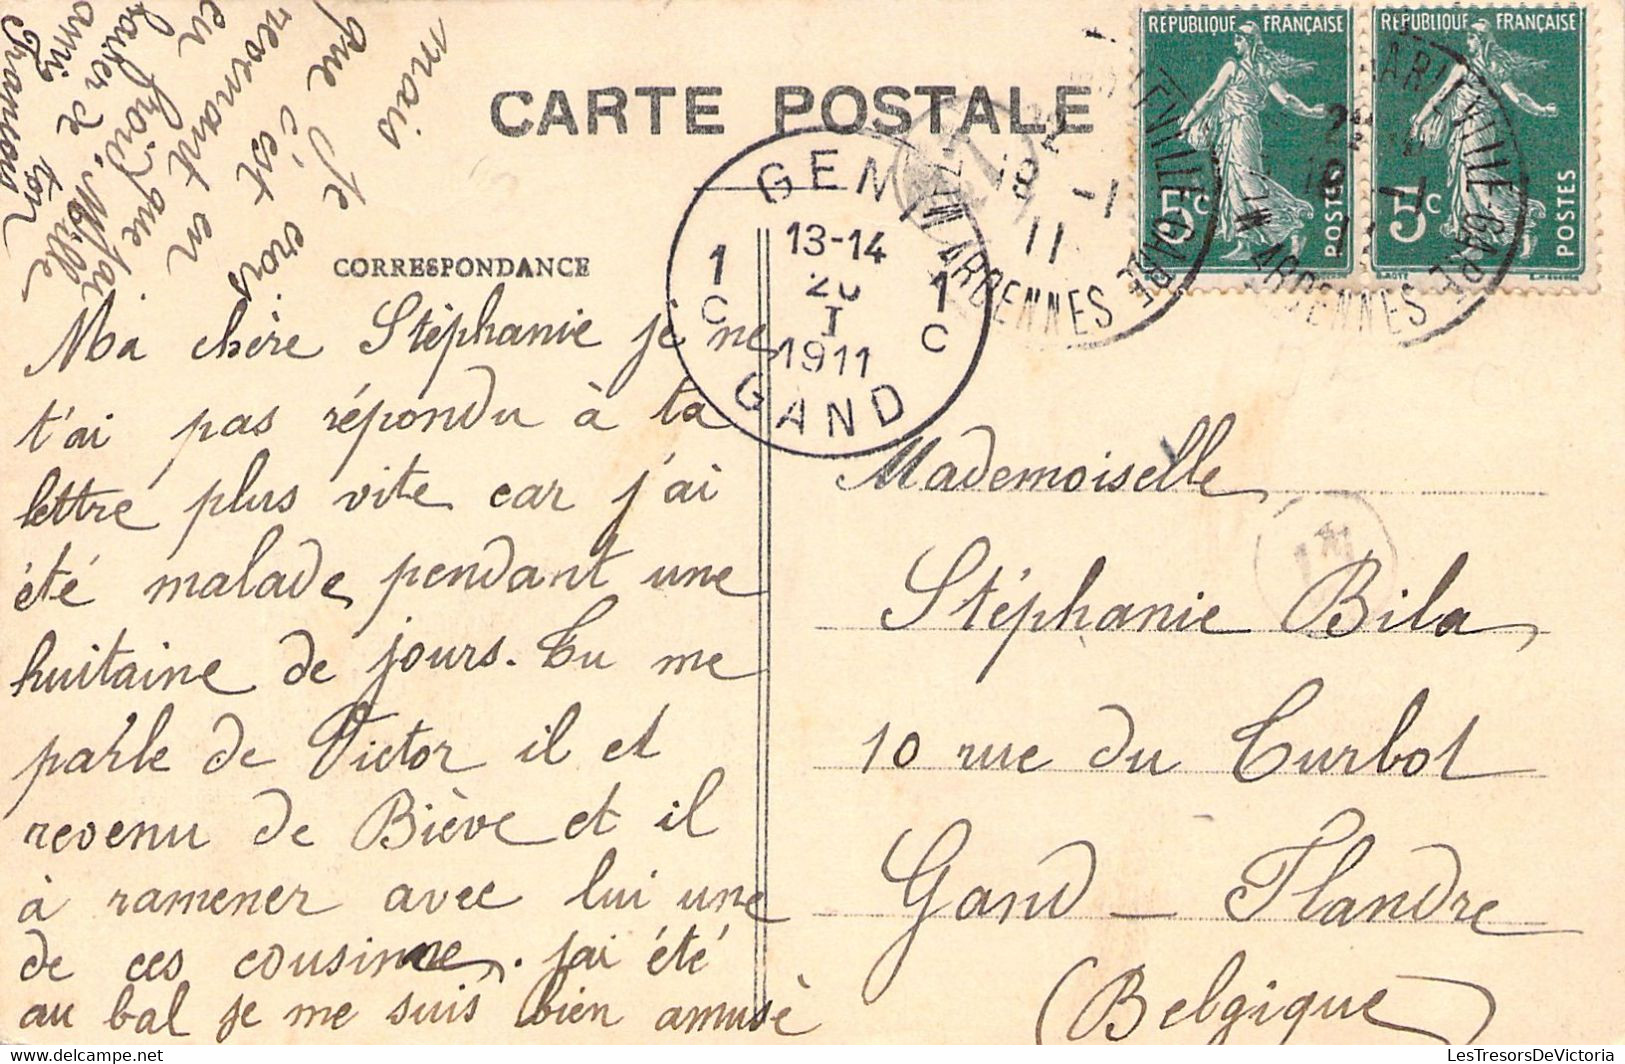 CARTE POSTALE
CORRESPONDANCE
RÉPUBLIQUE FRANÇAISE
5c
POSTES
RÉPUBLIQUE FRANÇAISE
5c
POSTES
GENT
13-14
1 1
C C
20
I
1911
GAND
ARDENNES
18 -1
11
ARDENNES
Ma chère Stéphanie je ne
t'ai pas répondu à ta
lettre plus vite car j'ai
été malade pendant une
huitaine de jours. Tu me
parle de Victor il et
revenu de Bière et il
à ramener avec lui une
de ces cousinne. jai été
au bal je me suis bien amusé
mais je crois
que c'est en
revenant que j'ai
eu froid. Mille
baiser de ton
amis
François
Mademoiselle
Stéphanie Bila
10 rue du Turbot
Gand - Flandre
(Belgique)
www.delcampe.net
LesTresorsDeVictoria